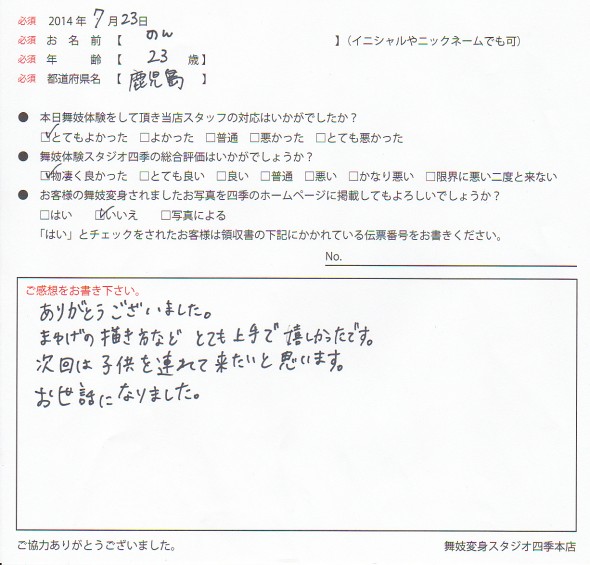 必須 2014年 7月23日
必須 お 名 前 【 のん 】（イニシャルやニックネームでも可）
必須 年 齢 【 23 歳】
必須 都道府県名 【 鹿児島 】
● 本日舞妓体験をして頂き当店スタッフの対応はいかがでしたか？
☑とてもよかった □よかった □普通 □悪かった □とても悪かった
● 舞妓体験スタジオ四季の総合評価はいかがでしょうか？
☑物凄く良かった □とても良い □良い □普通 □悪い □かなり悪い □限界に悪い二度と来ない
● お客様の舞妓変身されましたお写真を四季のホームページに掲載してもよろしいでしょうか？
□はい ☑いいえ □写真による
「はい」とチェックをされたお客様は領収書の下記にかかれている伝票番号をお書きください。
No.
ご感想をお書き下さい。
ありがとうございました。
まゆげの描き方など とても上手で嬉しかったです。
次回は子供を連れて来たいと思います。
お世話になりました。
ご協力ありがとうございました。 舞妓変身スタジオ四季本店